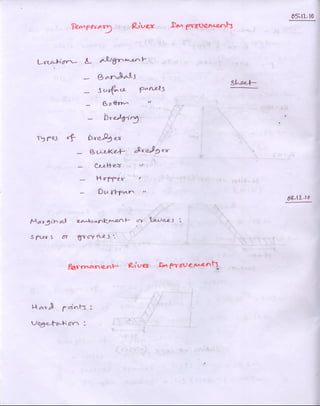 05.12.10
Temporary River Improvements
Location & alignment
- Bandals
- Surface panels
sheet
- Bottom "
- Dredging
Types of Dredger
- Bucket dredger
- Cutter "
- Hopper "
- Dustpan "
08.12.10
Marginal embankment or Levees :
Spurs or groynes :
Permanent River Improvements
Hard points :
Vegetation :